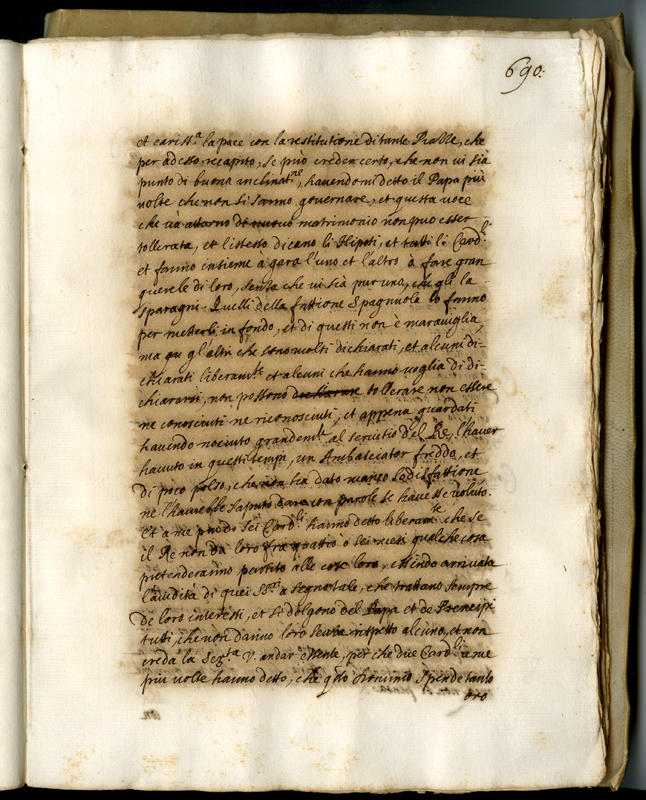 690:
et cariss.ª la pace con la restitutione di tante Piazze, che
per adesso recapito, se può creder certo, che non vi sia
punto di buona inclinat.ne, havendomi detto il Papa più
volte che non si sanno governare, et questa voce
che và attorno di nuovo matrimonio non può esser
tollerata, et l'istesso dicono li Nipoti, et tutti li Card.li
et fanno insieme à gara l'uno et l'altro à fare gran
querele di loro, senza che vi sia pur uno, che gli la
sparagni. Quelli della fattione Spagnuola lo fanno
per metterli in fondo, et di questi non è maraviglia,
ma gl'altri che sono molti dichiarati, et alcuni di-
chiarati liberam.te et alcuni che hanno voglia di di-
chiararsi, non possono tollerare non essere
ne conosciuti ne riconosciuti, et appena guardati
havendo nociuto grandem.te al servitio del Re, l'haver
havuto in questi tempi, un Ambasciator freddo, et
di poco polso, che non ha dato manco sodisfattione
ne l'haverebbe saputo dare con parole se havesse voluto.
Et a me più di sei Card.li hanno detto liberam.te che se
il Re non dà loro frà quattro o sei mesi qualche cosa
prenderanno partito alle cose loro, essendo arrivata
l'avidità di quei SS.ri a segno tale, che trattano sempre
de loro interessi, et si dolgono del Papa et de Prencipi
tutti, che non danno loro senza rispetto alcuno, et non
creda la Ser.tà V. andar essente, per che due Card.li a me
più volte hanno detto, che q.sto Dominio spende tanto
oro